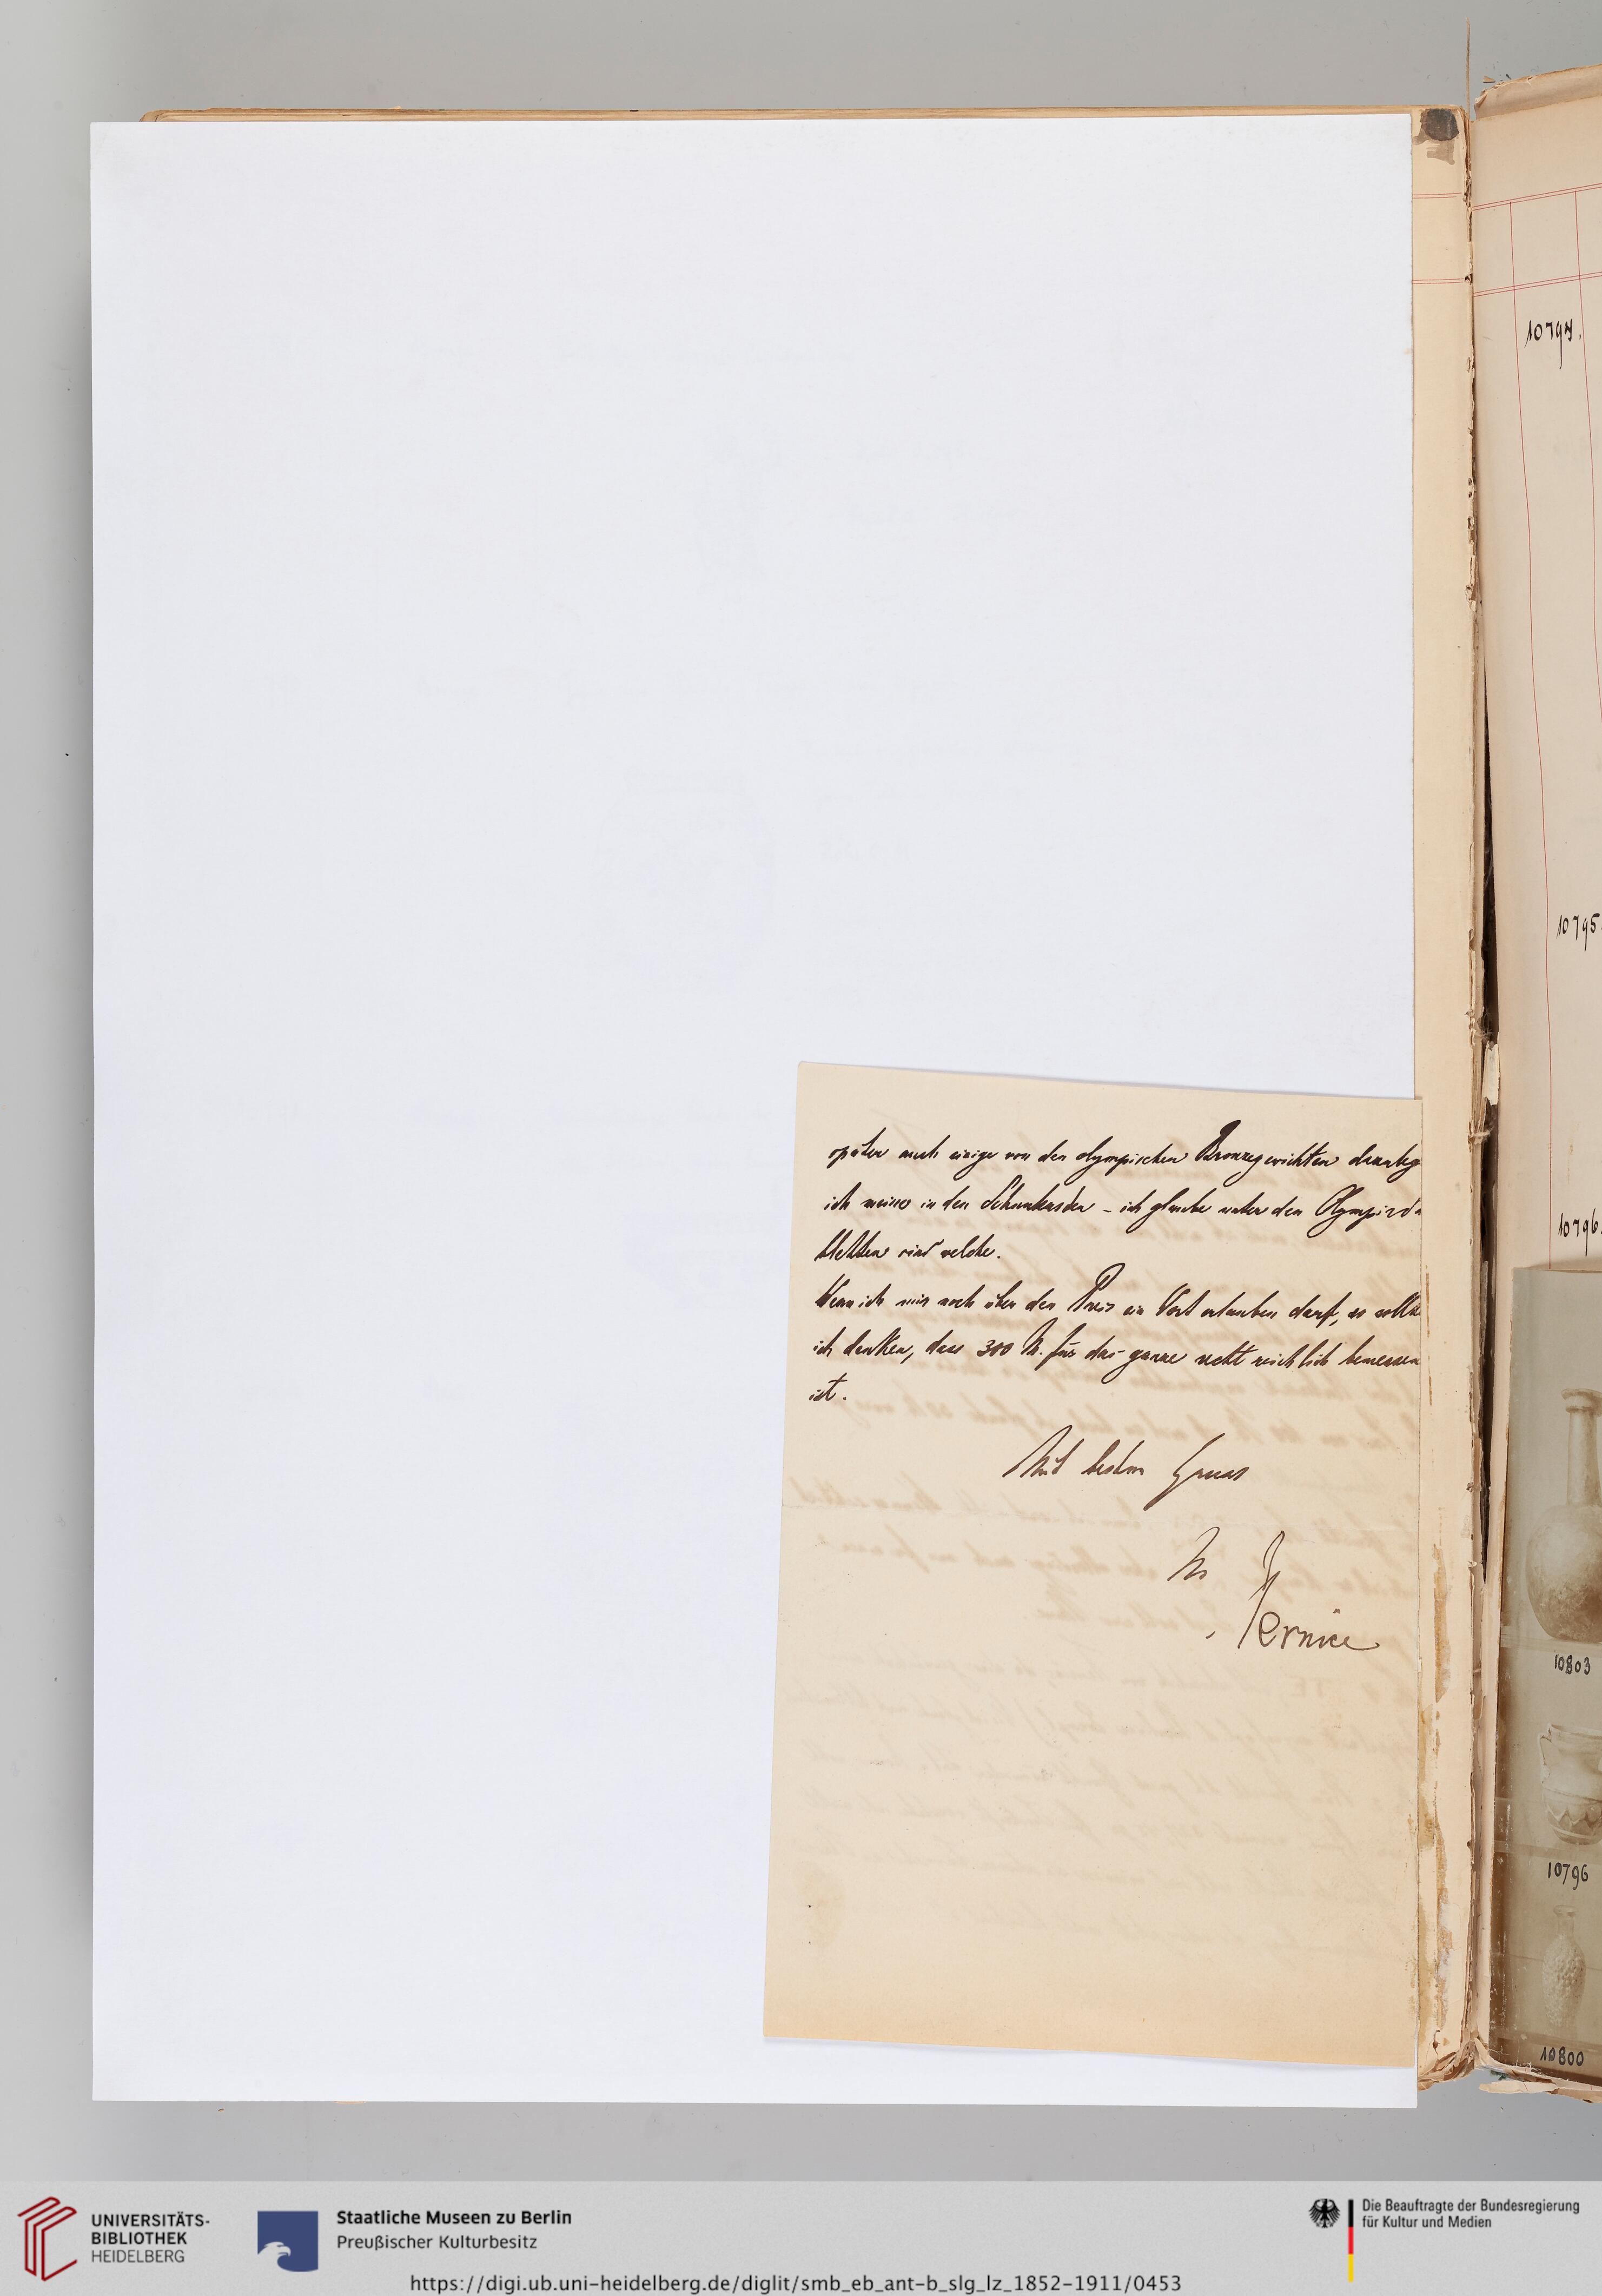 später auch einige von den olympischen Bronzegewichten dazuleg
ich meine in den Schränken - ich glaube unter den Olympia
sind welche.
Wenn ich mir noch über den Preis ein Wort erlauben darf, so sollte
ich denken, dass 300 M. für das ganze recht reichlich bemessen
ist.
Mit bestem Gruss
Ihr
Pernice
10794.
10795.
10796.
10803
10796
10800
UNIVERSITÄTS-
BIBLIOTHEK
HEIDELBERG
Staatliche Museen zu Berlin
Preußischer Kulturbesitz
Die Beauftragte der Bundesregierung
für Kultur und Medien
https://digi.ub.uni-heidelberg.de/diglit/smb_eb_ant-b_slg_lz_1852-1911/0453